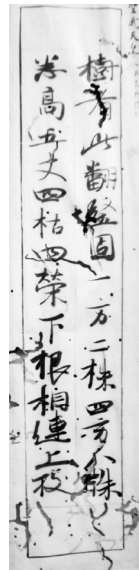 樹者此翻堅固一方二株四方八株
悉高五丈四枯四榮下根相連上枝